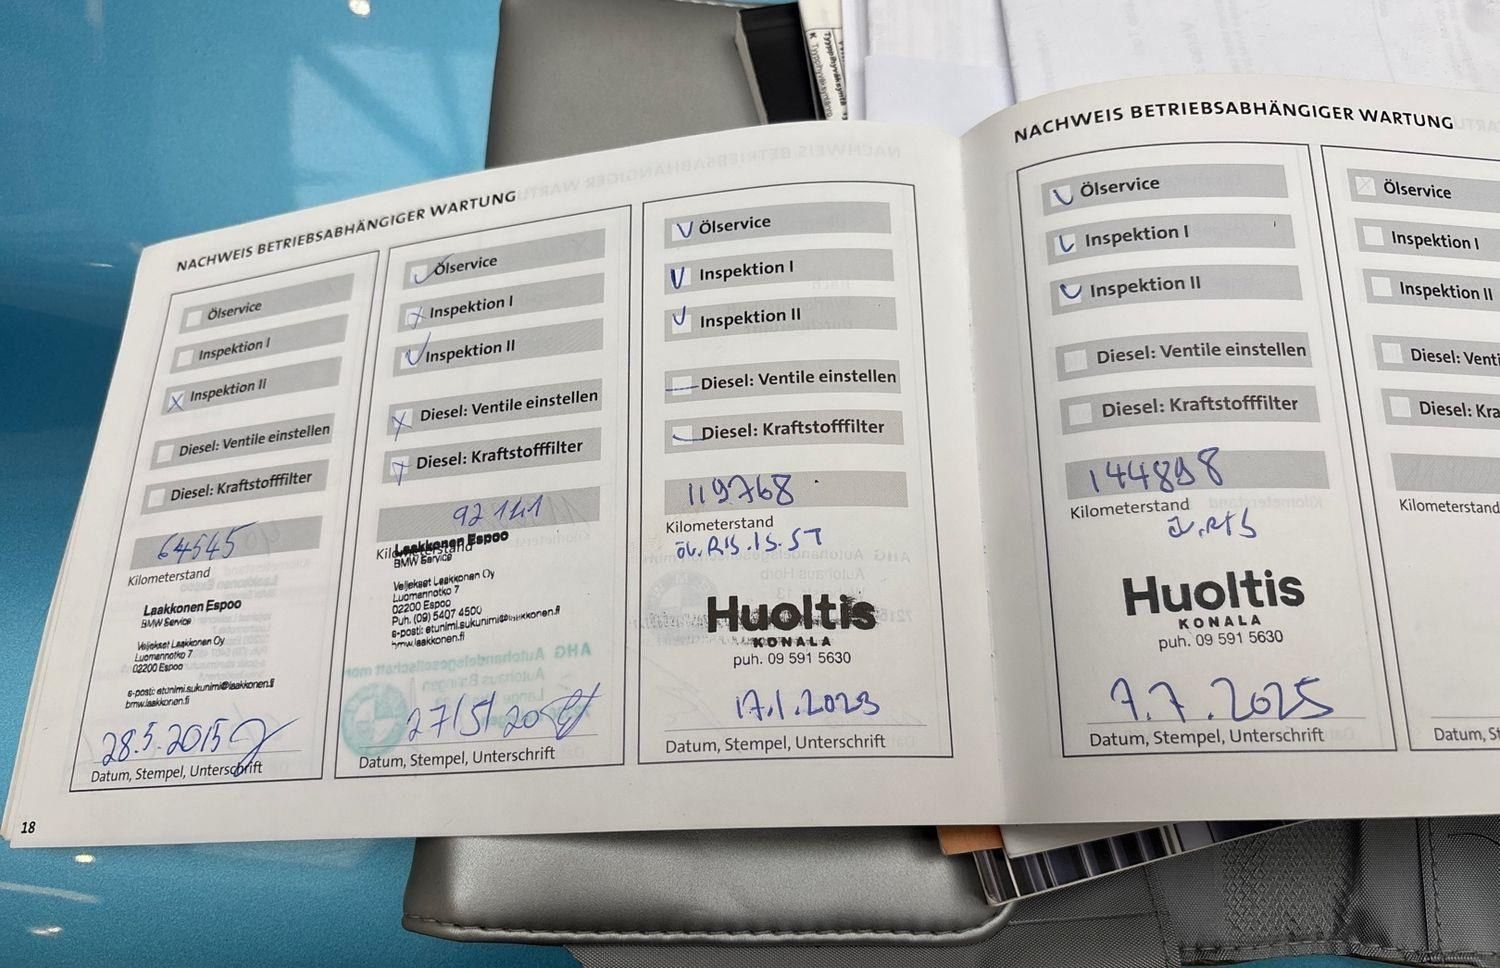 NACHWEIS BETRIEBSABHÄNGIGER WARTUNG
Ölservice
Inspektion I
Inspektion II
Diesel: Ventile einstellen
Diesel: Kraftstofffilter
64545
Kilometerstand
Laakkonen Espoo
BMW Service
Veljekset Laakkonen Oy
Luomannotko 7
02200 Espoo
s-posti: etunimi.sukunimi@laakkonen.fi
bmw.laakkonen.fi
28.5.2015
Datum, Stempel, Unterschrift
18
Ölservice
Inspektion I
Inspektion II
Diesel: Ventile einstellen
Diesel: Kraftstofffilter
92141
Kilometerstand
Laakkonen Espoo
BMW Service
Veljekset Laakkonen Oy
Luomannotko 7
02200 Espoo
Puh. (09) 5407 4500
s-posti: etunimi.sukunimi@laakkonen.fi
bmw.laakkonen.fi
27/5/20
Datum, Stempel, Unterschrift
Ölservice
Inspektion I
Inspektion II
Diesel: Ventile einstellen
Diesel: Kraftstofffilter
119768
Kilometerstand
Huoltis
KONALA
puh. 09 591 5630
17.1.2023
Datum, Stempel, Unterschrift
NACHWEIS BETRIEBSABHÄNGIGER WARTUNG
Ölservice
Inspektion I
Inspektion II
Diesel: Ventile einstellen
Diesel: Kraftstofffilter
144898
Kilometerstand
Huoltis
KONALA
puh. 09 591 5630
7.7.2025
Datum, Stempel, Unterschrift
Ölservice
Inspektion I
Inspektion II
Diesel: Venti
Diesel: Kra
Kilometerstand
Datum, St